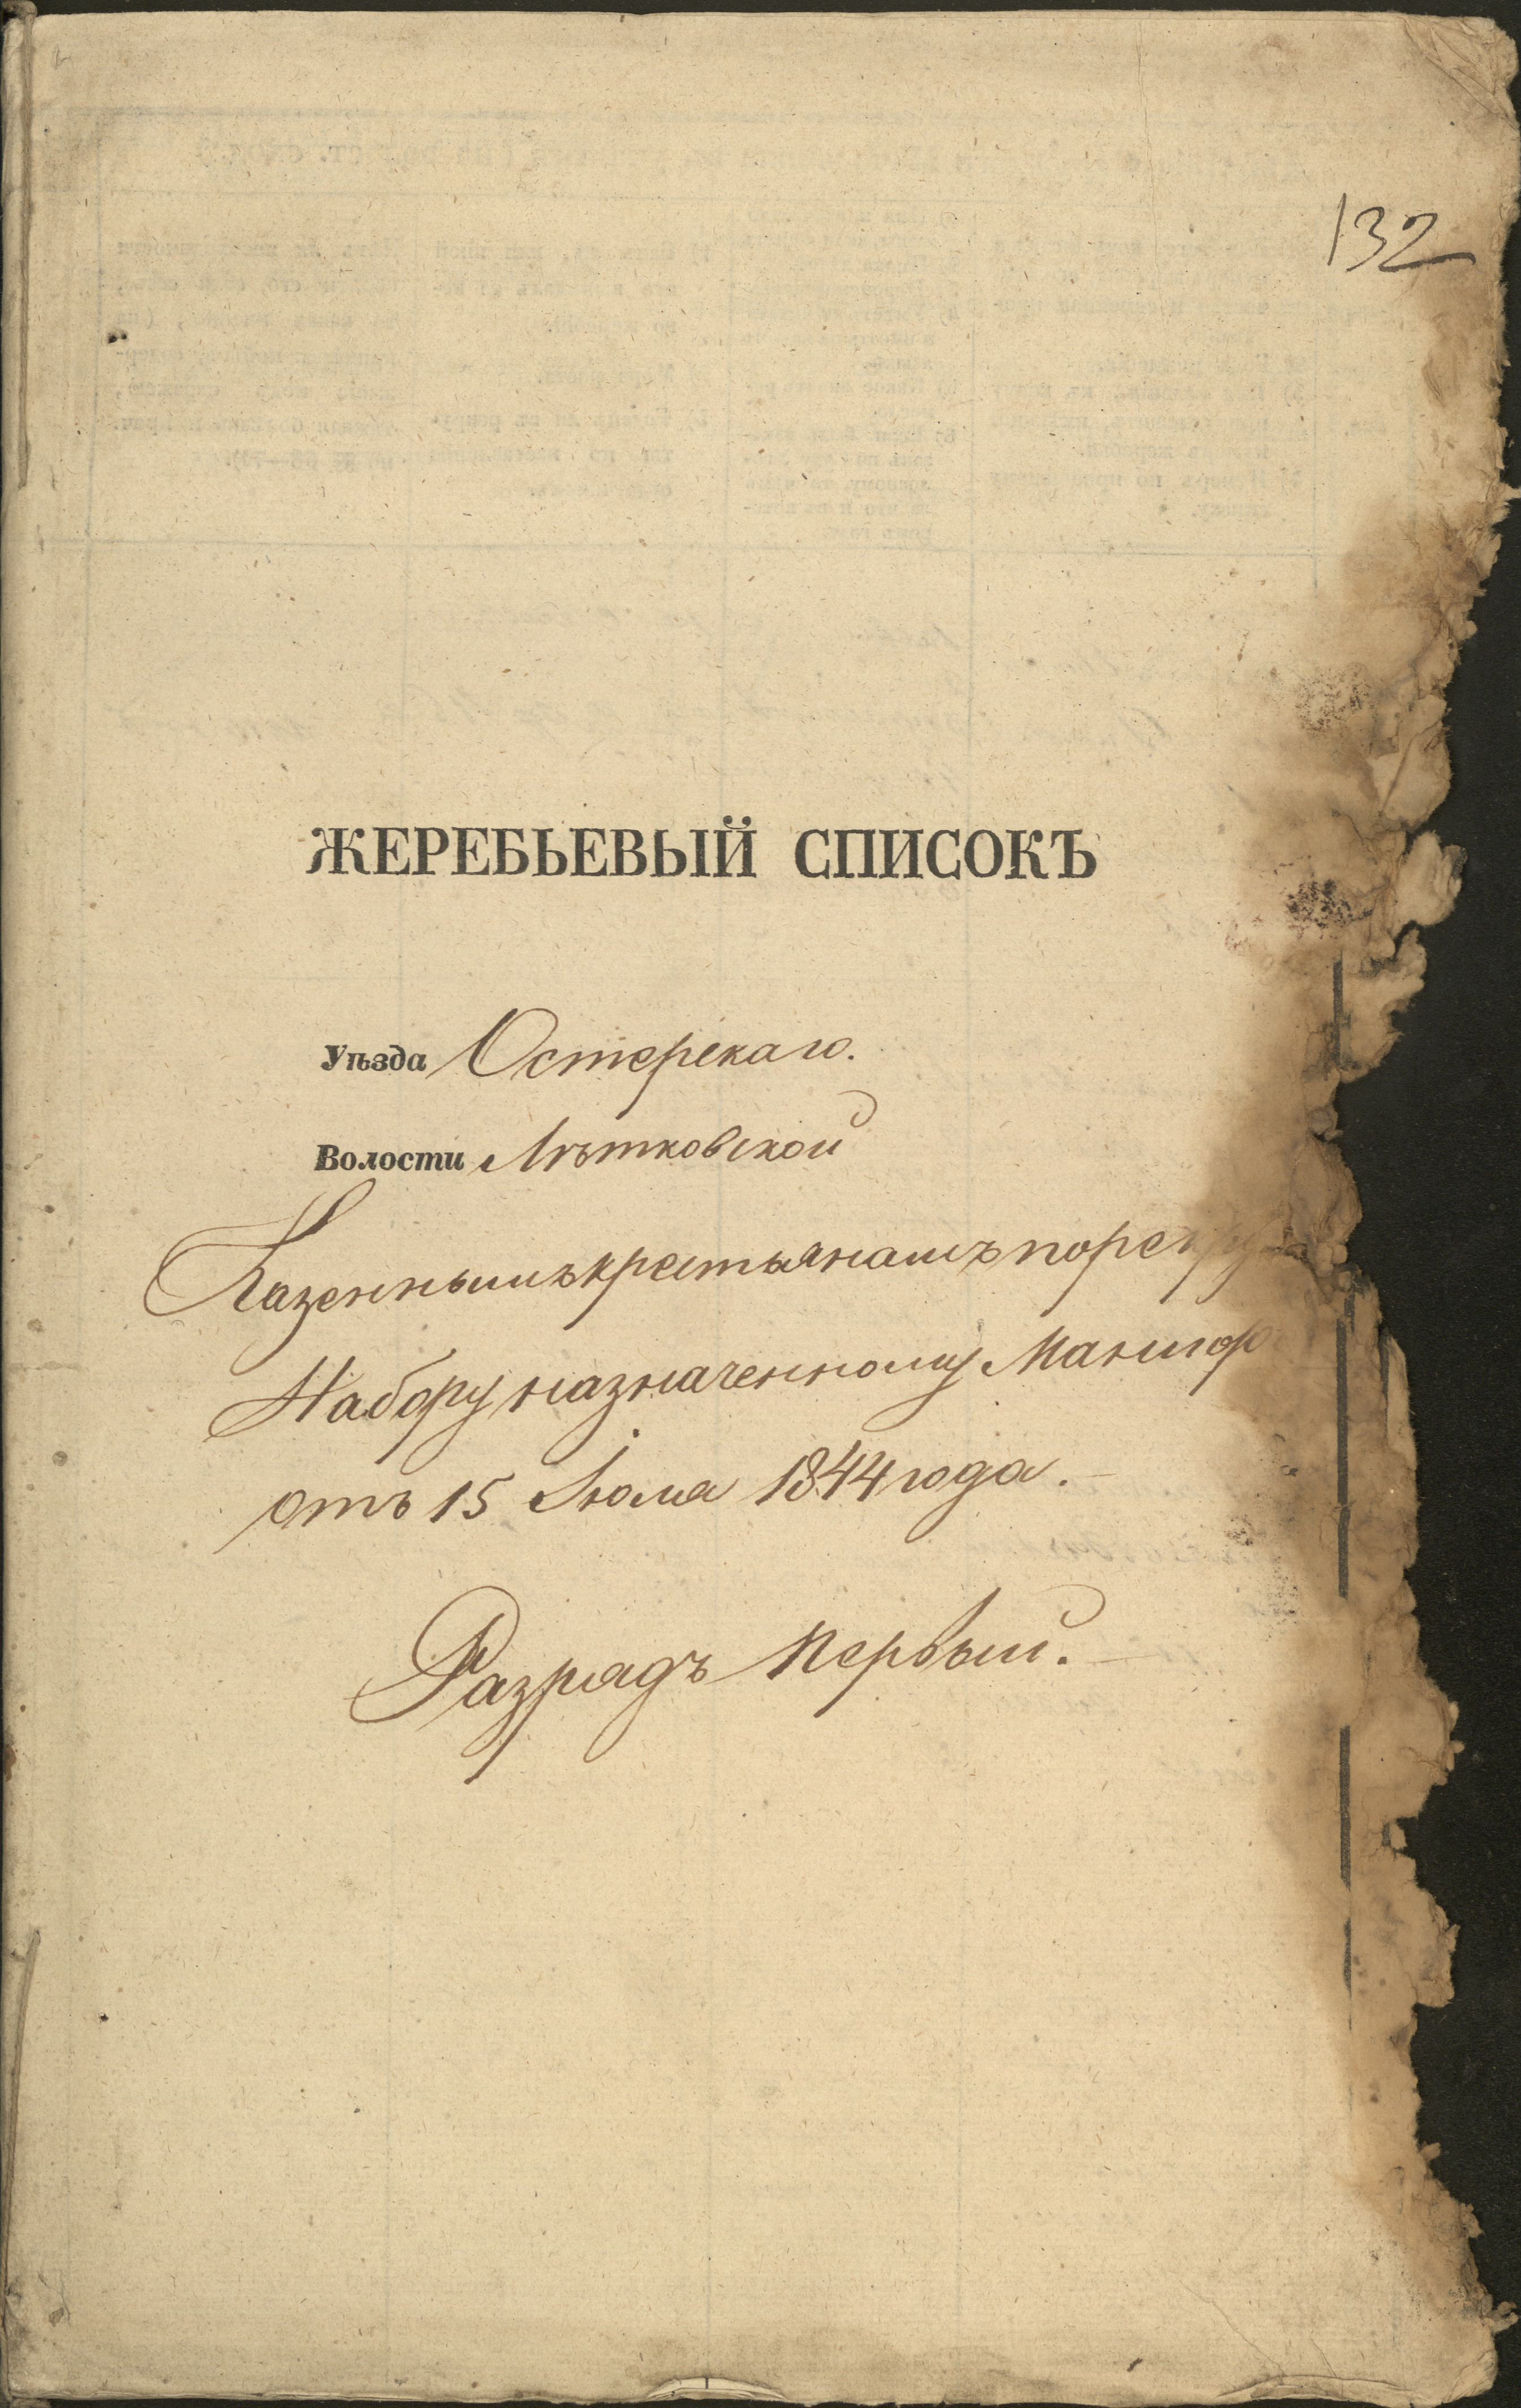 132
ЖЕРЕБЬЕВЫЙ СПИСОКЪ
Уѣзда Остерскаго.
Волости Лѣтковской
Казеннымъ крестьянамъ по рекру
Набору назначенному Маниф
отъ 15 Іюля 1844 года.
Разрядъ первый.